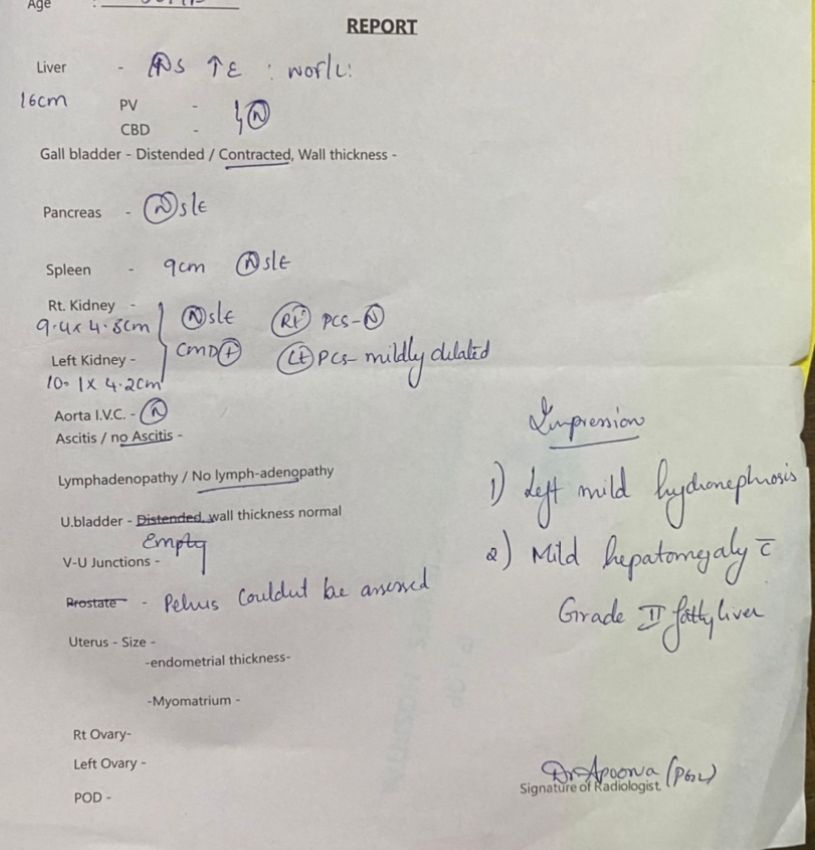 Age :
REPORT
Liver - Ⓝ S ↑E : no f/L:
16cm
PV -
CBD - } Ⓝ
Gall bladder - Distended / Contracted, Wall thickness -
Pancreas - Ⓝ S/E
Spleen - 9cm Ⓝ S/E
Rt. Kidney - Ⓝ S/E (Rt) PCS-Ⓝ
9.4 x 4.8cm
Left Kidney - CMD⊕ (Lt) PCS- mildly dilated
10.1 X 4.2cm
Aorta I.V.C. - Ⓝ
Ascitis / no Ascitis -
Lymphadenopathy / No lymph-adenopathy
U.bladder - Distended, wall thickness normal
Empty
V-U Junctions -
Prostate - Pelvis Couldnt be assessed
Uterus - Size -
-endometrial thickness-
-Myomatrium -
Rt Ovary-
Left Ovary -
POD -
Impression
1) Left mild hydronephrosis
2) Mild hepatomegaly c̄
Grade II fatty liver
Dr Apoorva
Signature of Radiologist